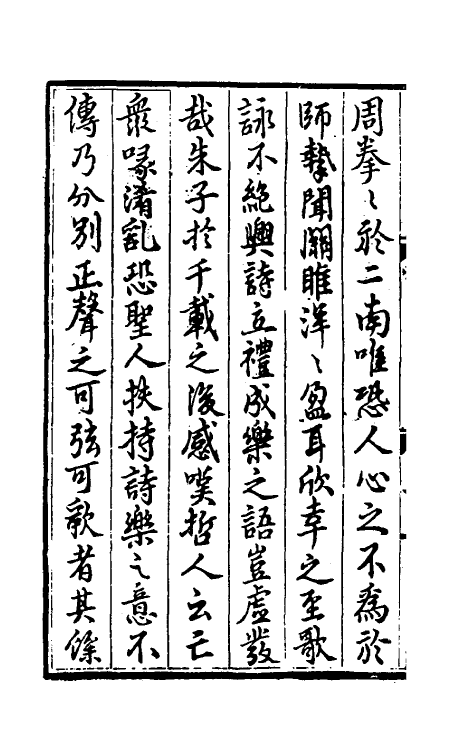 周拳〻於二南唯恐人心之不為於
師摯聞關雎洋〻盈耳欣幸之至歌
詠不絕興詩立禮成樂之語豈虛發
哉朱子於千載之後感嘆哲人云亡
眾喙淆亂恐聖人扶持詩樂之意不
傳乃分別正聲之可弦可歌者其餘